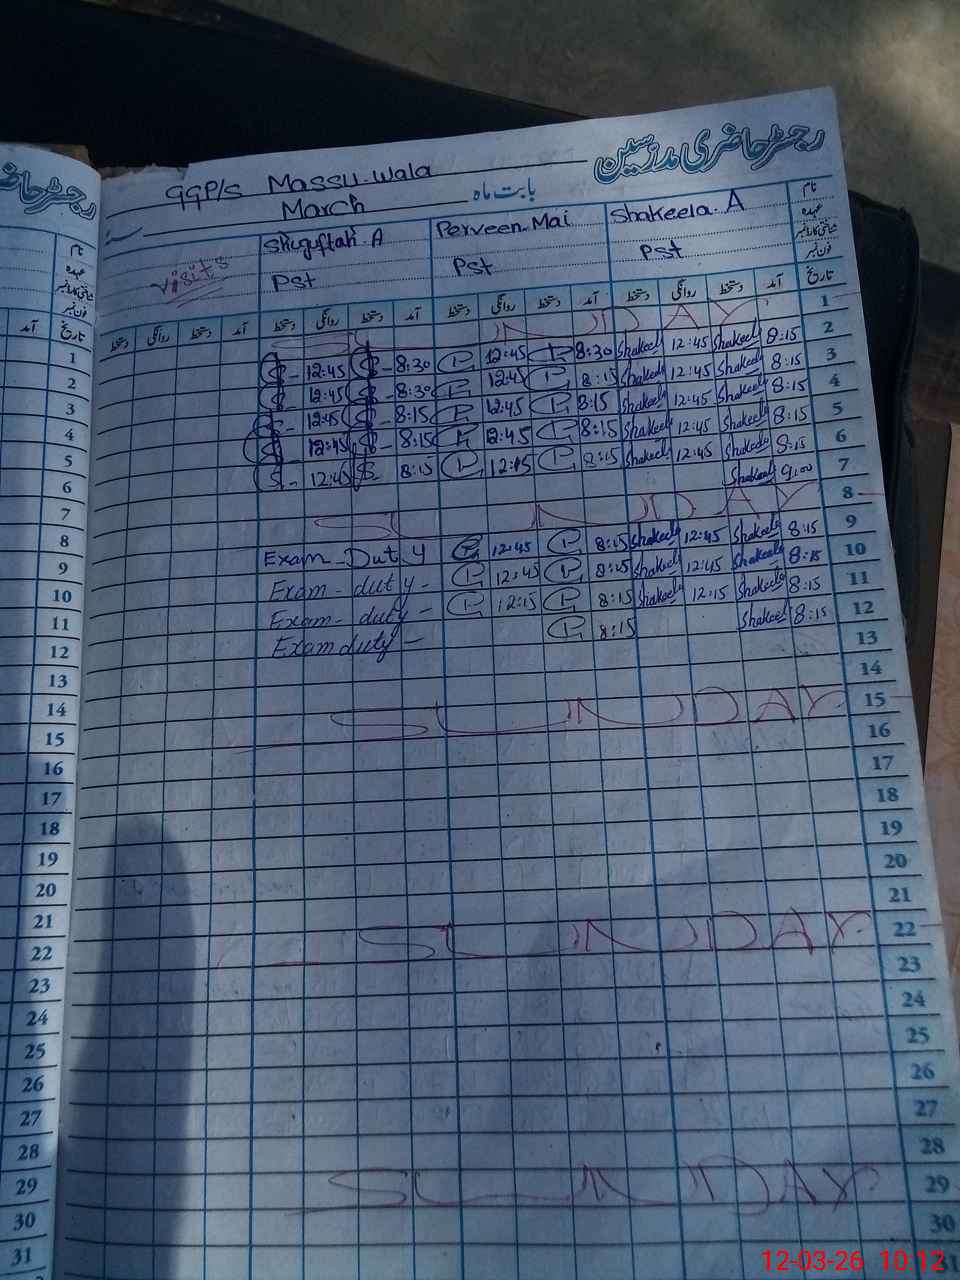 رجسٹر حاضری مدرسین
GGP/S Massu-Wala
بابت ماہ March
نام Shakeela.A Perveen.Mai Shuguftah.A visits نام
عہدہ Pst Pst Pst عہدہ
شناختی کارڈ نمبر
فون نمبر
تاریخ آمد دستخط روانگی دستخط آمد دستخط روانگی دستخط آمد دستخط روانگی دستخط آمد دستخط روانگی دستخط تاریخ آمد
SUNDAY 1
1 12:45 8:30 12:45 8:30 Shakeela 12:45 Shakeela 8:15 2
2 12:45 8:30 12:45 8:15 Shakeela 12:45 Shakeela 8:15 3
3 12:45 8:15 12:45 8:15 Shakeela 12:45 Shakeela 8:15 4
4 12:45 8:15 12:45 8:15 Shakeela 12:45 Shakeela 8:15 5
5 12:45 8:15 12:45 8:15 Shakeela 12:45 Shakeela 8:15 6
6 Shakeela 9:00 7
7 SUNDAY 8
8 Exam Duty 12:45 8:15 Shakeela 12:45 Shakeela 8:15 9
9 Exam - duty - 12:45 8:15 Shakeela 12:45 Shakeela 8:15 10
10 Exam - duty - 12:15 8:15 Shakeela 12:15 Shakeela 8:15 11
11 Exam duty - 8:15 Shakeela 8:15 12
12 13
13 14
14 SUNDAY 15
15 16
16 17
17 18
18 19
19 20
20 21
21 SUNDAY 22
22 23
23 24
24 25
25 26
26 27
27 28
28 SUNDAY 29
29 30
30 31
31
12-03-26 10:12